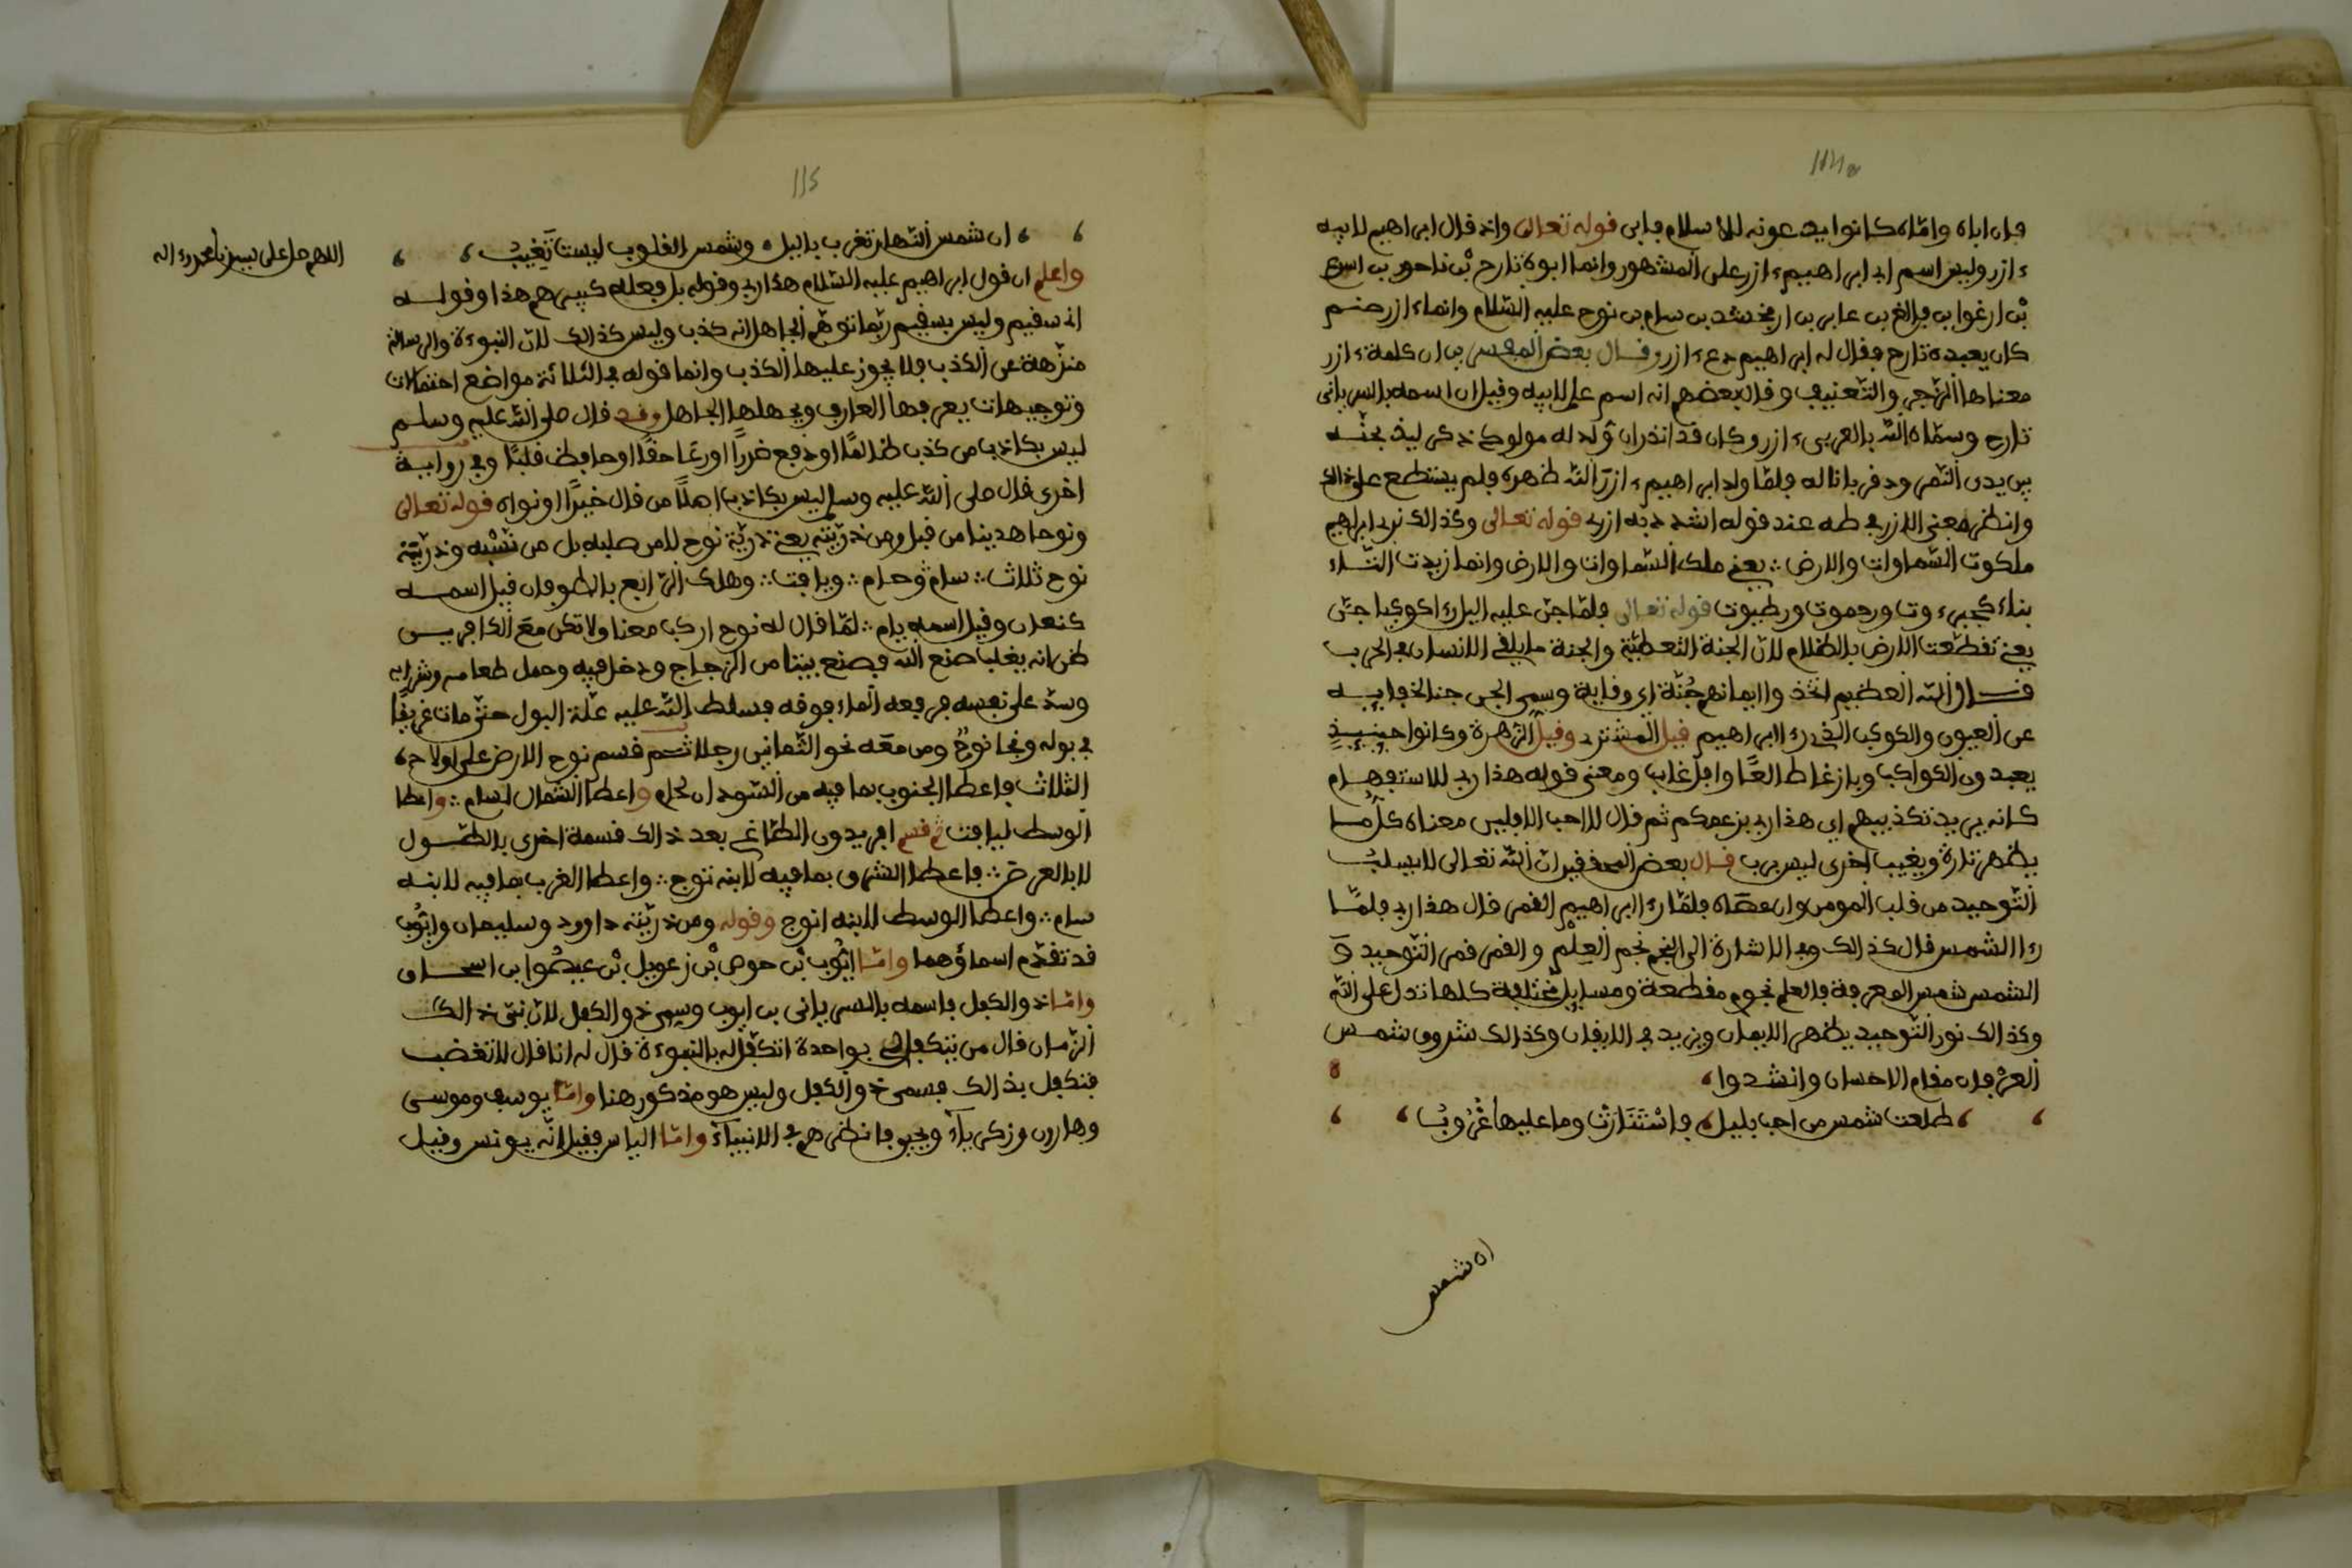 114
فان اباه وامّاه كانوا يدعونه للاسلام فابى قوله تعالى واذ قال ابراهيم لابيه
ءازر وليس اسم ابي ابراهيم ءازر على المشهور وانما ابوه تارح بْن ناحور بن اسرع
بْن ارغوا بن فالغ بن عابر بن ارفخشد بن سام بن نوح عليه السّلام وانما ءازر صنم
كان يعبده تارح فقال له ابراهيم دع ءازر وقال بعض المفسرين ان كلمة ءازر
معناها الزّجر والتّعنيف وقال بعضهم انه اسم علم لابيه وقيل ان اسمه بالسريانى
تارح وسمّاه الله بالعربى ءازر وكان قد انذر ان وُلد له مولود ذكر ليذبحنّه
بين يدى النّمرود قربانا له فلمّا ولد ابراهيم ءازرَ الله ظهره فلم يستطع على ذالك
وانظر معنى الازر في طه عند قوله اشدد به ازرى قوله تعالى وكذالك نرى ابراهيم
ملكوت السّماوات والارض ؞ يعنى ملك السّماوات والارض وانما زيدت التاء
بناء كجبروت ورحموت ورطبوت قوله تعالى فلمّا جنّ عليه اليل رءا كوكبا جنّ
يعنى تغطّت الارض بالظلام لانّ الجنة التغطيّة والجنة ما يلقى الانسان في الحرب
قال الله العظيم اتّخذوا ايمانهم جُنّة اي وقاية وسمى الجن جنا لخفايه
عن العيون والكوكب الذى رءا ابراهيم قيل المشترى وقيل الزهرة وكانوا حينيذٍ
يعبدون الكواكب وبازغا طالعًا وافل غاب ومعنى قوله هذا ربى للاستفهام
كانه يريد تكذيبهم اي هذا ربى بزعمكم ثم قال لا احب الافلين معناه كلّ ما
يظهر تارة ويغيب اخرى ليس برب قال بعض المحققين انّ الله تعالى لا يسلبُ
التّوحيد من قلب المومن وان عصاه فلمّا رءا ابراهيم القمر قال هذا ربى فلمّا
رءا الشمس قال كذالك وفي الاشارة الى النجم نجم العِلْم والقمر قمر التّوحيد وَ
الشمس شمس المعرفة فالعلم نجوم مقطعة ومسايل مختلفة كلها تدل على الله
وكذالك نور التّوحيد يظهر الايمان ويزيد في الايقان وكذالك شروق شمس
العرْفان مقام الاحسان وانشدوا
طلعت شمس من احب بليل فاسْتَنَارَتْ وما عليها غُرُوبُ
ان شمس
115
ان شمس النّهار تغرب باليل وشمس القلوب ليست تَغِيبُ
اللهم صل على سيدنا محمد وءاله
واعلم ان قول ابراهيم عليه السّلام هذا ربى وقوله بل فعله كبيرهم هذا وقوله
انى سقيم وليس بسقيم ربّما توهّم الجاهل انه كذب وليس كذالك لانّ النبوءة والرسالة
منزّهة عن الكذب فلا يجوز عليها الكذب وانما قوله في الثلاثة مواضع احتمالات
وتوجيهات يعرفها العارف ويجهلها الجاهل وقد قال صلى الله عليه وسلم
ليس بكاذب من كذب ظالمًا او دفع ضررًا او رعَا حقًا او حافظ قلبًا وفي رواية
اخرى قال صلى الله عليه وسلم ليس بكاذب اصلًا من قال خيرًا او نواه قوله تعالى
ونوحا هدينا من قبل ومن ذرّيّته يعنى ذريّة نوح لامن صلبه بل من نَسْبه وذرّيّة
نوح ثلاث ؞ سام وحام ؞ ويافت ؞ وهلك الرّابع بالطوفان قيل اسمه
كنعان وقيل اسمه يام ؞ لمّا قال له نوح اركب معنا ولا تكن معَ الكافرين
ظن انه يغلب صنع الله فصنع بيتا من الزجاج ودخل فيه وحمل طعامه وشرابه
وسدّ على نفسه فرفعه الماء فوقه فسلط الله عليه علّة البول حتى مات غريقًا
في بوله ونجا نوحٌ ومن معَه نحو الثّمانين رجلا ثم قسم نوح الارض على اولاده
الثلاث فاعطا الجنوب بما فيه من السّودان لحام واعطا الشمال لسام ؞ واعطا
الوسط ليافت ثم قسم افريدون الطاغى بعد ذالك قسمة اخرى بالطول
لا بالعرض ؞ فاعطا الشرق بما فيه لابنه توج ؞ واعطا الغرب بما فيه لابنه
سام ؞ واعطا الوسط لابنه انوج وقوله ومن ذرّيّته داوود وسليمان وايّوب
قد تقدّم اسماؤهما وامّا ايّوب بْن حوص بْن زعويل بْن عيصُوا بن اسحاق
وامّا ذو الكفل فاسمه بالسريانى بن ايوب وسمى ذو الكفل لانّ نبى ذالك
الزّمان قال من يتكفل لى بواحدة اتكفّل له بالنبوءة قال له انا قال لا تغضب
فتكفل بذالك فسمى ذو الكفل وليس هو مذكور هنا وامّا يوسف وموسى
وهارون وزكرياءَ ويحيى فانظرهم في الانبياءَ وامّا الياس فقيل انّه يونس وقيل